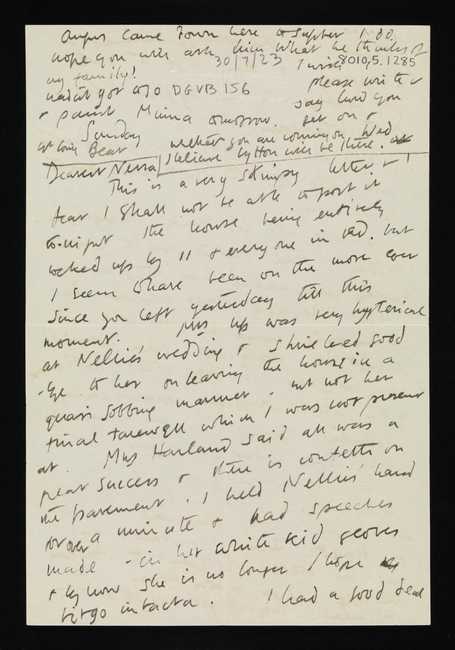 Angus came down here to supper. I do
hope you will ask him what he thinks of
my family!
30/7/23
8010,5.1285
I wish
please write &
had it got to DGVB 156
say how you
& paint Minna tomorrow.
get on &
Sunday
whether you are coming on Wed
Bear
I believe Lytton will be there.
Dearest Nessa
This is a very skimpy letter & I
fear I shall not be able to post it
to-night the house being entirely
locked up by 11 & everyone in bed. but
I seem to have been on the move ever
since you left yesterday till this
moment. Mrs Ups was very hysterical
at Nellie's wedding & shrieked good
-bye to her on leaving the house in a
quasi sobbing manner - but not her
final farewell which I was not present
at. Mrs Harland said all was a
great success & there is confetti on
the pavement. I held Nellie's hand
for over a minute & had speeches
made - in her white kid gloves
& by now she is no longer I hope
virgo intacta. I had a good deal